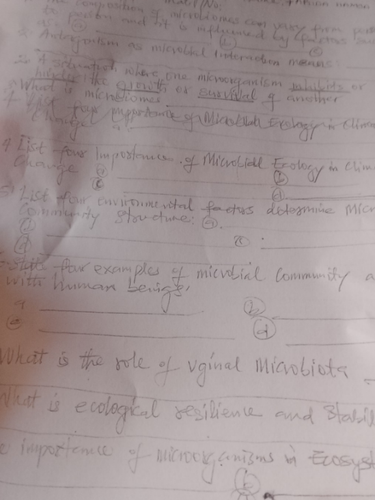 The composition of microbiomes can vary from
to person and it is influenced by factors such
as (a) (b) (c)
Antagonism as microbial interaction means:
A situation where one microorganism inhibits or
the growth or survival of another
What is microbiomes
List four importance of Microbial Ecology in Clim
Change a
List four Importance of Microbial Ecology in Clim
Change (a) (b)
(c) (d)
List four environmental factors determine Micr
Community structure: (a)
(b) (c) :
(d)
four examples of microbial Community a
with human beings,
a (b)
(c) (d)
What is the role of vginal Microbiota
What is ecological resilience and Stabil
importance of microorganisms in Ecosyst